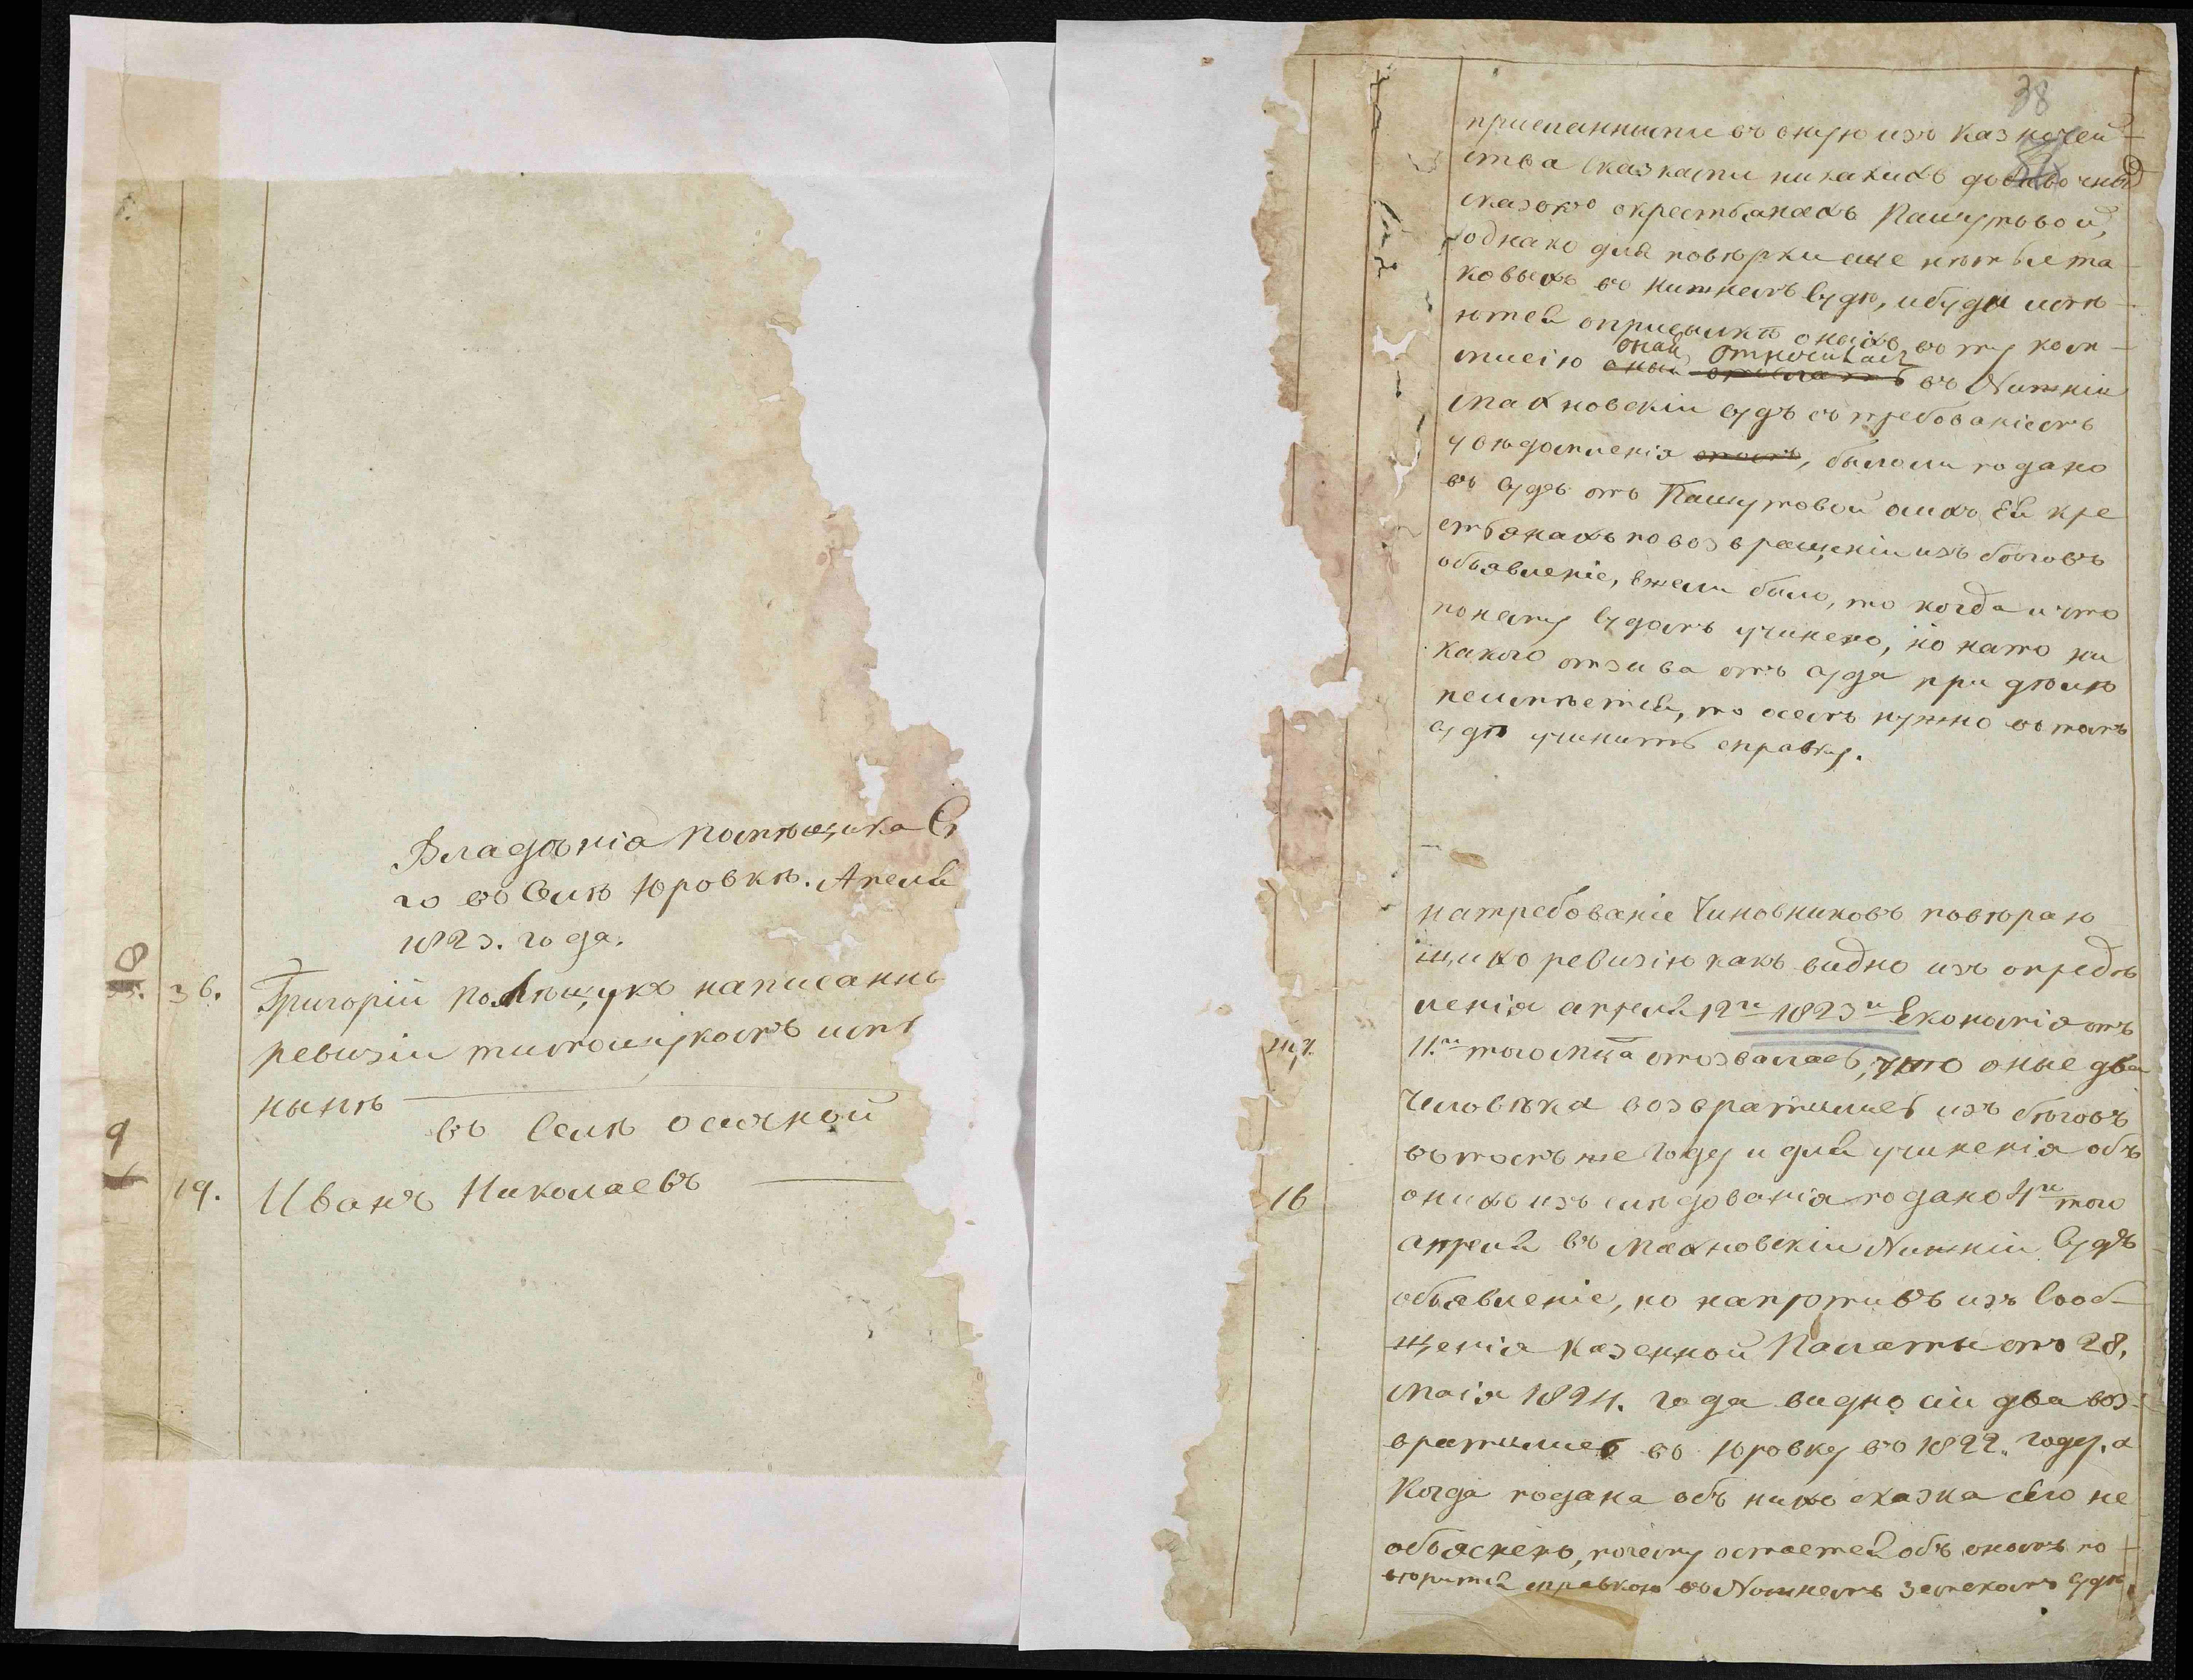 Владѣнія помѣщика
го въ Селѣ Юровкѣ. Апреля
1823. года.
8
36. Григорій Полѣщукъ написанны
ревизіи тимощукомъ имѣ
нынѣ
въ Селѣ Осичной
9
19. Иванъ Николаевъ
38
присланными въ оную изъ Казначей-
ства сказками никакихъ добавочныхъ
сказокъ о крестьянахъ Пашутовой,
однако для повѣрки еще нѣтъ ли та-
ковыхъ въ Нижнемъ Судѣ, и буди имѣ-
ютсѧ о присылкѣ оныхъ въ ту ком-
оная относилась
мисію въ Нижній
Махновскій Судъ съ требованіемъ
увѣдомленія, было ли подано
въ Судъ отъ Пашутовой о сихъ Ея кре
стьянахъ по возвращеніи изъ бѣговъ
объявленіе, ежели было, то когда и что
по нему Судомъ учинено, но на то ни
какого отзыва отъ Суда при дѣлѣ
неимѣется, то о семъ нужно въ томъ
Судѣ учинить справку.
на требованіе Чиновниковъ повѣряю
щихъ ревизію какъ видно изъ опредѣ
ленія апреля 12го 1823го Економія отъ
11.го того мца отозвалась, что оные два
Человѣка возвратились изъ бѣговъ
въ томъ же Году и для учиненія объ
16 онихъ изъ слѣдованія подано 4го того
апреля въ Махновскій Нижній Судъ
объявленіе, но напротивъ изъ Сооб-
щенія Казенной Палаты отъ 28.
Маія 1824. года видно сіи два воз-
вратились въ Юровку въ 1822. году. а
Когда подана объ нихъ сказка сего не
объяснено, почему остается объ ономъ по
вѣрится справкою въ Нижнемъ Земскомъ Судѣ,